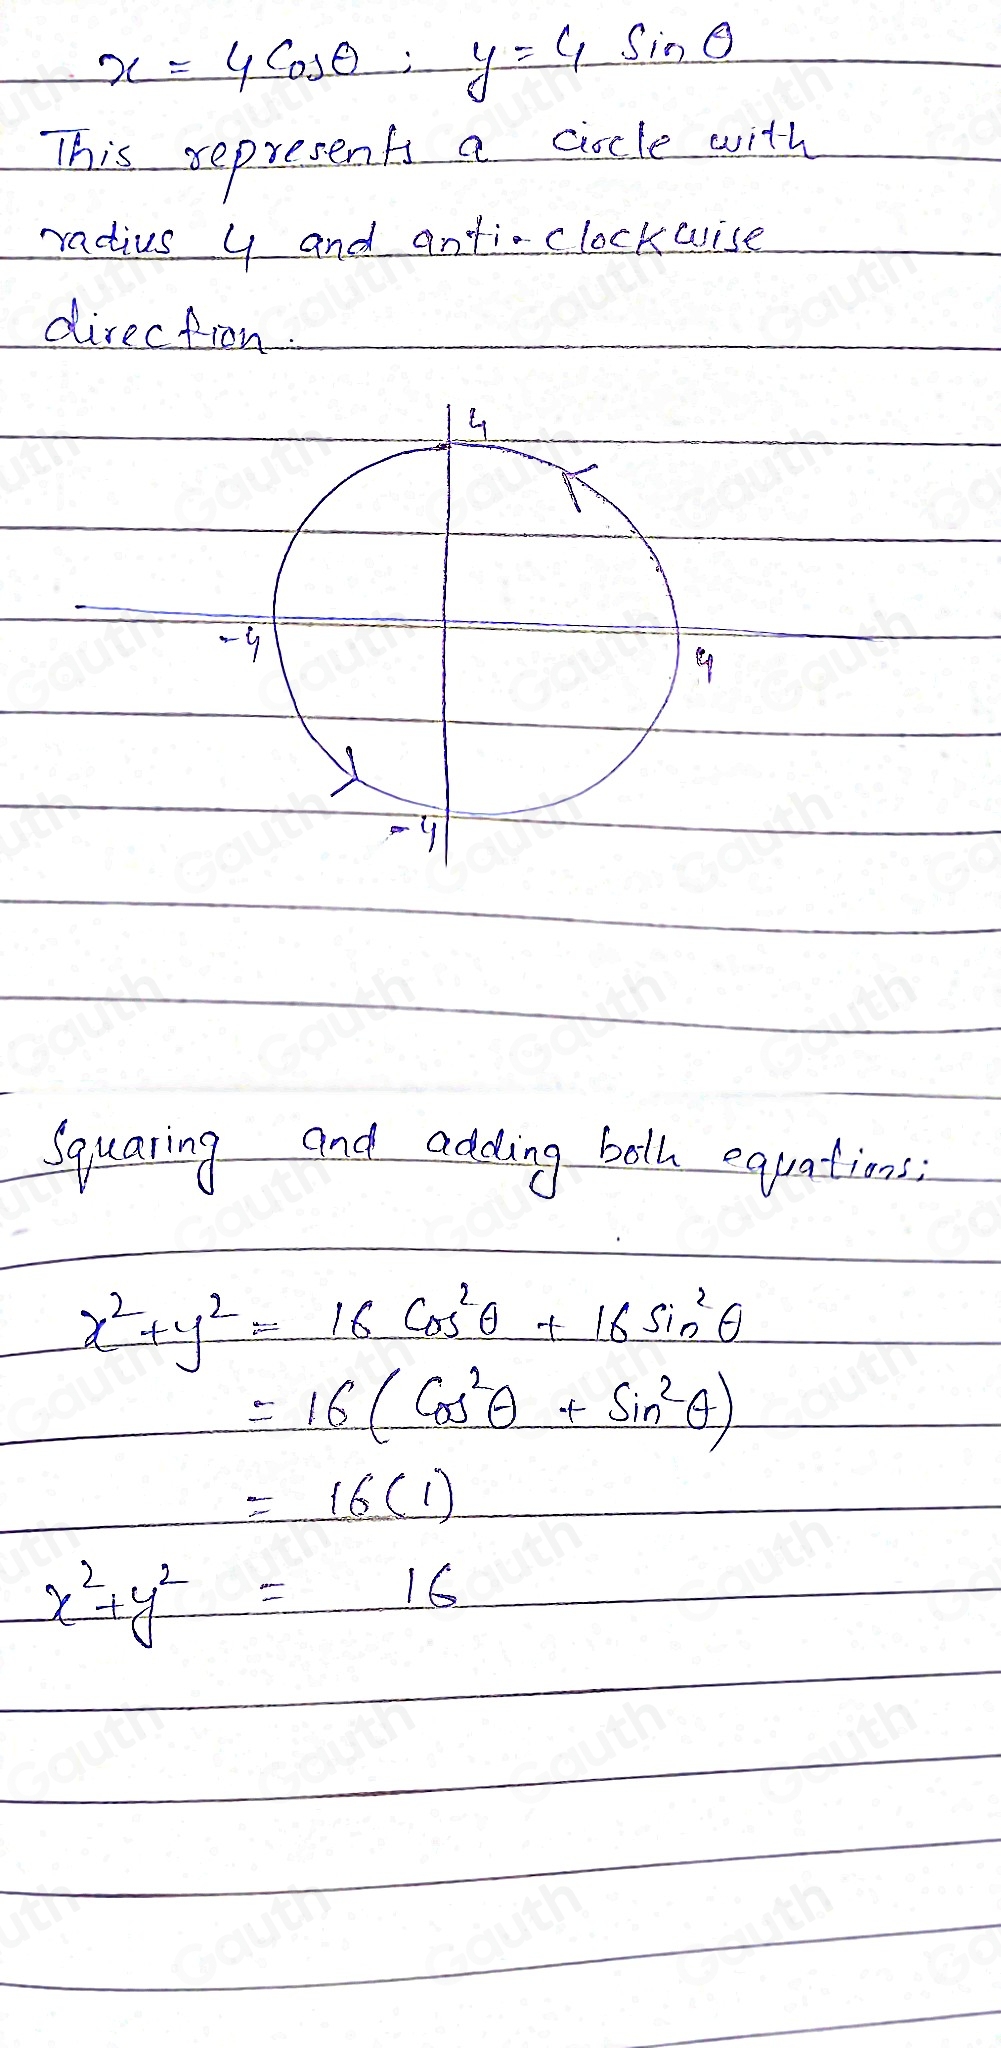 x = 4 Cosθ ; y = 4 Sin θ
This represents a circle with
radius 4 and anti-clockwise
direction.
4
-4
4
-4
Squaring and adding both equations;
x²+y² = 16 Cos²θ + 16 Sin²θ
= 16 ( Cos²θ + Sin²θ)
= 16(1)
x²+y² = 16
Gauth